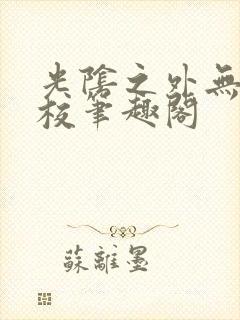 光陰之外無
校筆趣閣
蘇離墨